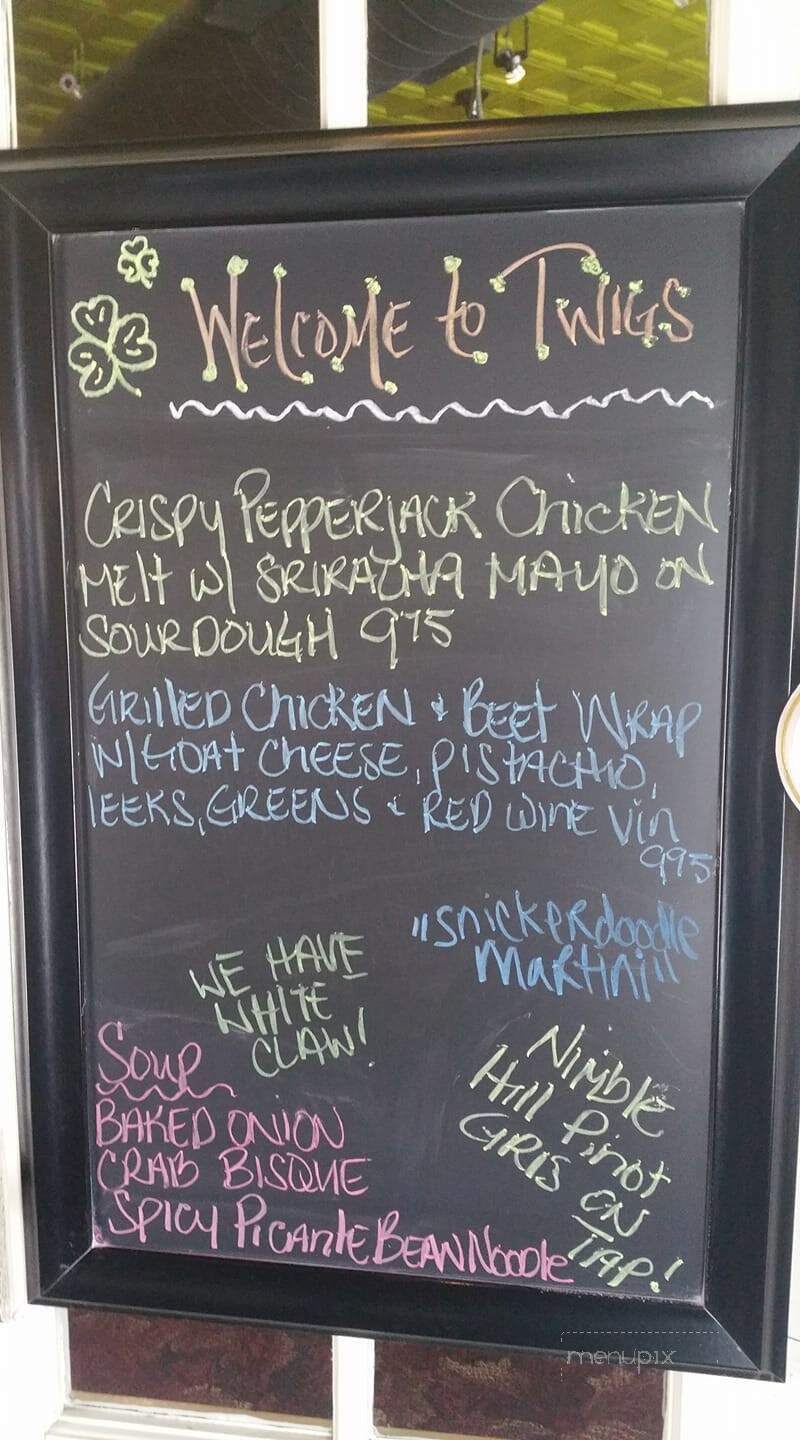 WELCOME to TWIGS
CRISPY PEPPERJACK CHICKEN
MELT W/ SRIRACHA MAYO ON
SOURDOUGH 975
GRILLED CHICKEN & BEET WRAP
W/ GOAT CHEESE, PISTACHIO,
LEEKS, GREENS & RED WINE Vin
995
"snickerdoodle
Martini"
WE HAVE
WHITE
CLAW!
Soup
BAKED ONION
CRAB BISQUE
SPICY PICANTE BEAN NOODLE
NIMBLE
Hill Pinot
GRIS ON
TAP!
menupix